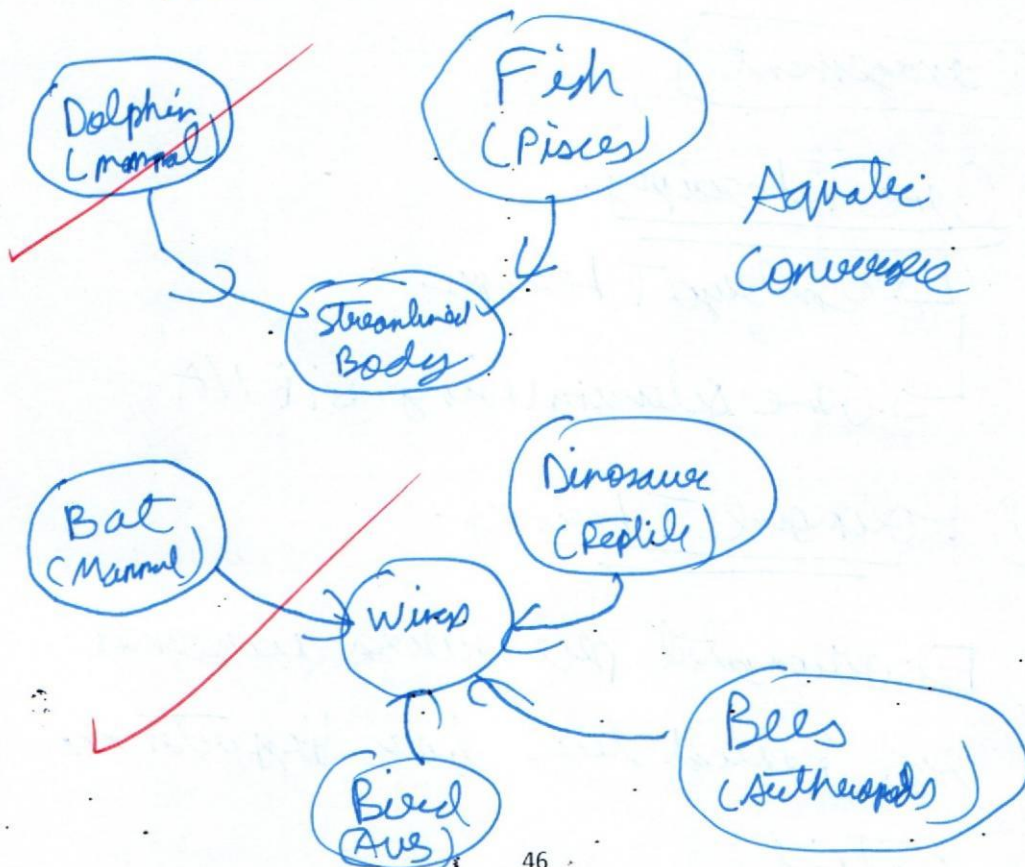 Dolphin
(mammal)
Fish
(Pisces)
Aquatic
Convergence
Streamlined
Body
Bat
(Mammal)
Dinosaur
(Reptile)
Wings
Bees
(Arthropods)
Bird
(Aves)
46